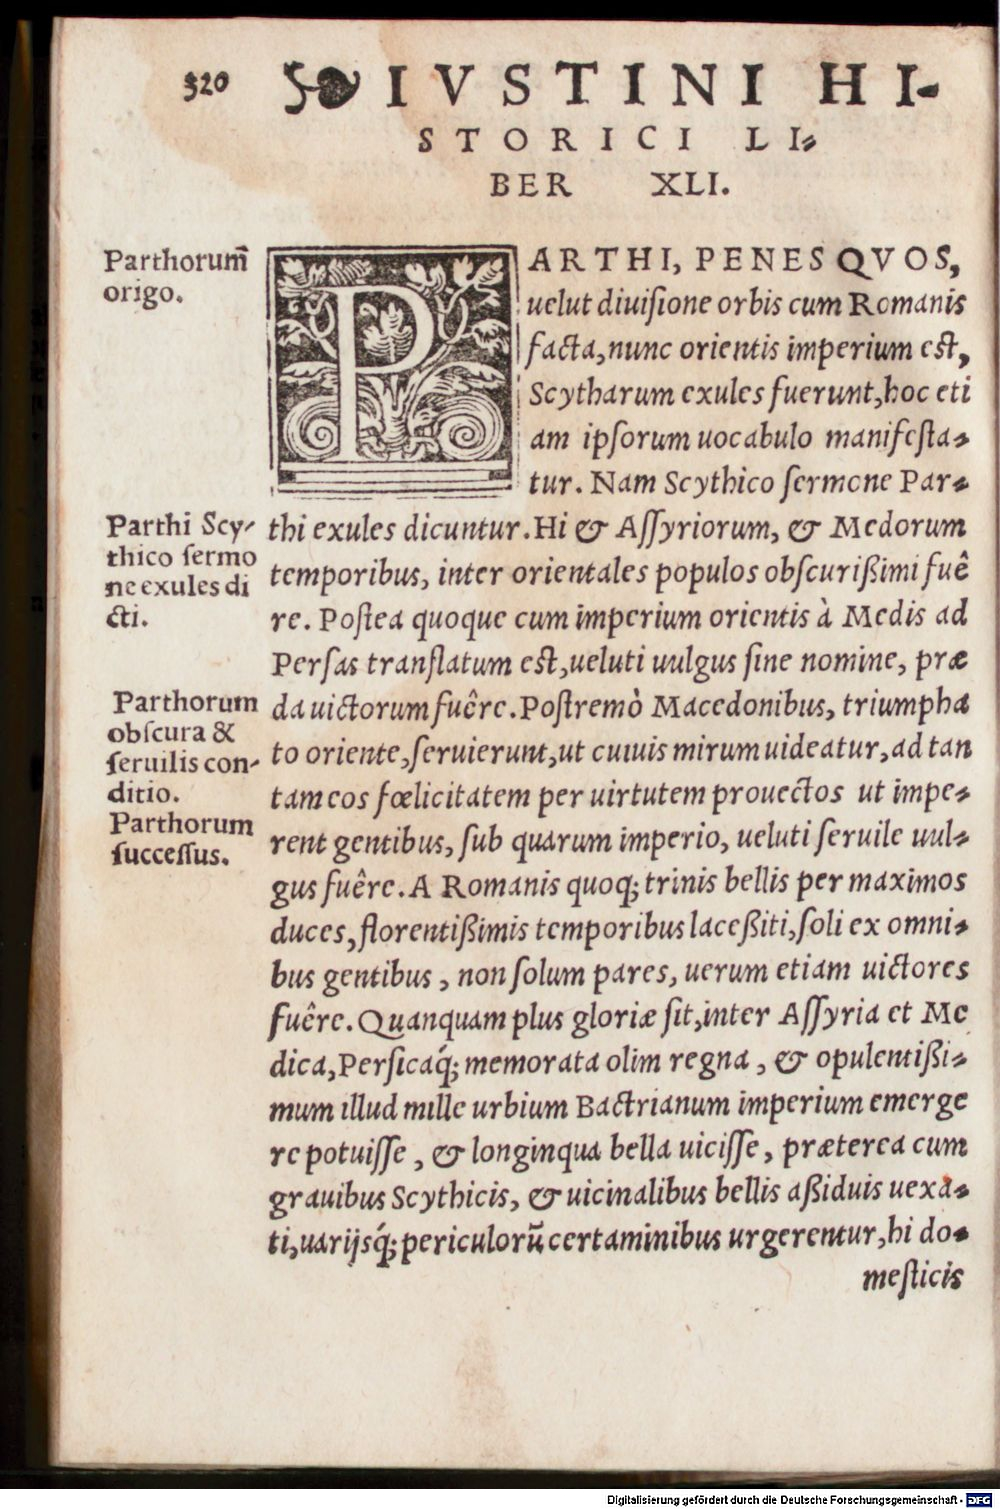 320 ❧ IVSTINI HI-
STORICI LI-
BER XLI.
Parthorum̃
origo.
PARTHI, PENES QVOS,
uelut diuiſione orbis cum Romanis
facta, nunc orientis imperium eſt,
Scytharum exules fuerunt, hoc eti
am ipſorum uocabulo manifeſta-
tur. Nam Scythico ſermone Par-
Parthi Scy-
thico ſermo
ne exules di
cti.
thi exules dicuntur. Hi & Aſſyriorum, & Medorum
temporibus, inter orientales populos obſcurißimi fuê
re. Poſtea quoque cum imperium orientis à Medis ad
Perſas tranſlatum eſt, ueluti uulgus ſine nomine, præ
Parthorum
obſcura &
ſeruilis con-
ditio.
Parthorum
ſucceſſus.
da uictorum fuêre. Poſtremò Macedonibus, triumpha
to oriente, ſeruierunt, ut cuiuis mirum uideatur, ad tan
tam eos fœlicitatem per uirtutem prouectos ut impe-
rent gentibus, ſub quarum imperio, ueluti ſeruile uul-
gus fuêre. A Romanis quoq; trinis bellis per maximos
duces, florentißimis temporibus laceßiti, ſoli ex omni-
bus gentibus, non ſolum pares, uerum etiam uictores
fuêre. Quanquam plus gloriæ ſit, inter Aſſyria et Me
dica, Perſicaq́; memorata olim regna, & opulentißi-
mum illud mille urbium Bactrianum imperium emerge
re potuiſſe, & longinqua bella uiciſſe, præterea cum
grauibus Scythicis, & uicinalibus bellis aßiduis uexa-
ti, uarijsq́; periculorũ certaminibus urgerentur, hi do-
meſticis
Digitalisierung gefördert durch die Deutsche Forschungsgemeinschaft - DFG